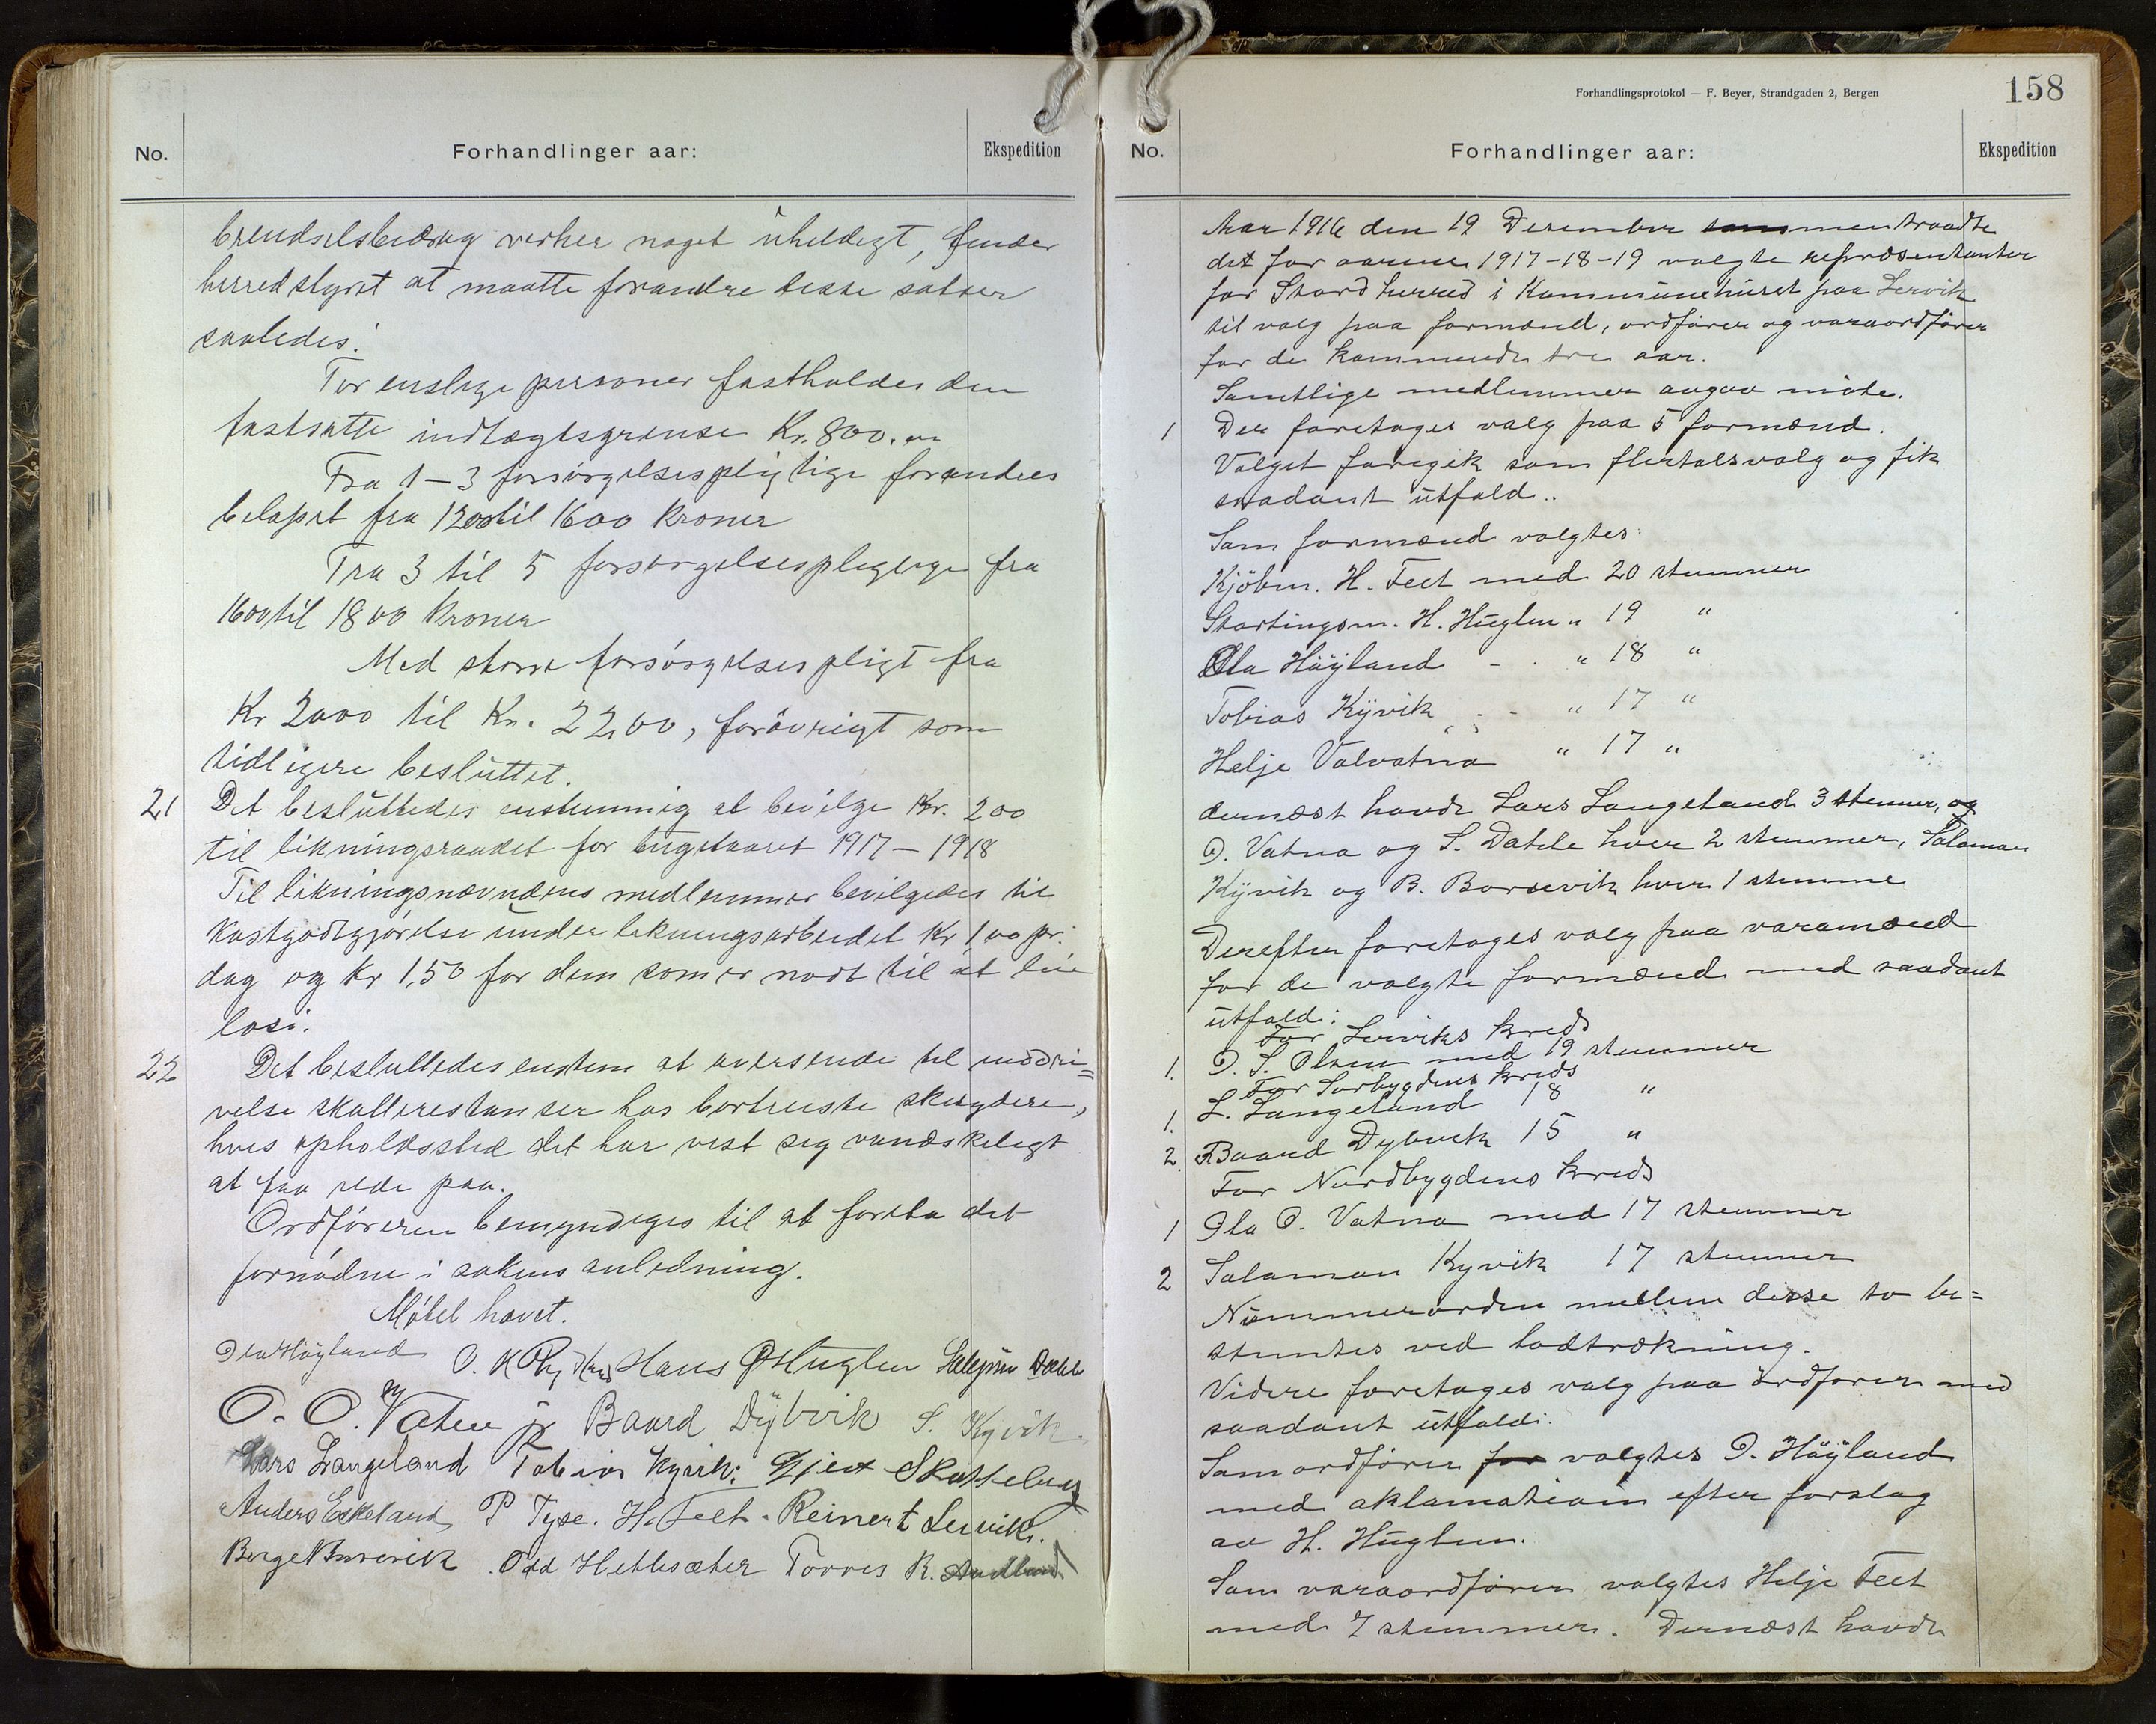 No.
Forhandlinger aar:
Ekspedition
brendselsbidrag verker noget uheldigt, finder
herredstyret at maatte forandre disse satser
saaledes:
For enslige personer fastholdes den
fastsatte indtægtsgrense Kr. 800,00
Fra 1-3 forsørgelsespligtige forandres
beløpet fra 1200 til 1600 kroner
Fra 3 til 5 forsørgelsespligtige fra
1600 til 1800 kroner
Med større forsørgelsespligt fra
Kr 2000 til Kr. 2200, forøvrigt som
tidligere besluttet.
21 Det besluttedes enstemmig at bevilge Kr. 200
til likningsraadet for bugetaaret 1917-1918
Til likningsnævndens medlemmer bevilgedes til
Kostgodtgjørelse under likningsarbeidet Kr 1,00 pr.
dag og Kr 1,50 for dem som er nødt til at leie
losi.
22 Det besluttedes enstem at oversende til inddri=
velse skatterestanser hos bortreiste skuydere,
hvis opholdssted det har vist seg vanskeligt
at faa rede paa.
Ordføreren bemyndiges til at foreta det
fornødne i sakens anledning.
Møtet hævet.
Ola Høyland O. K. Hans Ø Huglen Salejmn Datle
O. O. Vatna jr Baard Dÿbvik S. Kyvik.
Lars Langeland Tobias Kyvik: Gjert Skuttelvig
Anders Eskeland P Tyse. H. Feet. Reinert Lervik.
Børge Børsevik Odd Hetlesæter Torres R.
Forhandlingsprotokol — F. Beyer, Strandgaden 2, Bergen
158
No.
Forhandlinger aar:
Ekspedition
Aar 1916 den 19 Desember sammentraadte
det for aarene 1917-18-19 valgte repræsentanter
for Stord herred i Kommunehuset paa Lervik
til valg paa formænd, ordfører og varaordfører
for de kommende tre aar.
Samtlige medlemmer avgav møte.
1 Der foretages valg paa 5 formænd.
Valget foregik som flertalsvalg og fik
saadant utfald..
Som formænd valgtes:
Kjöbm. H. Feet med 20 stemmer
Stortingsm. H. Huglen " 19 "
Ola Höÿland - . " 18 "
Tobias Kÿvik - - " 17 "
Helje Valvatna " 17 "
dernæst havde Lars Langeland 3 stemer, og
O. Vatna og S. Datle hver 2 stemmer, Salamon
Kÿvik og B. Borsevik hver 1 stemme
Derefter foretages valg paa varamænd
for de valgte formænd med saadant
utfald:
For Lerviks kreds
1. O. S. Olsen med 19 stemmer
For Sørbygdens kreds
1. L. Langeland 18 "
2. Baard Dybvik 15 "
For Nordbygdens kreds
1 Ola O. Vatna med 17 stemmer
2 Salamon Kyvik 17 stemmer
Nummerorden mellem disse to be=
stemtes ved lodtrækning.
Videre foretages valg paa ordfører med
saadant utfald:
Som ordfører for valgtes O. Höÿland
med aklamation efter forslag
av H. Huglen.
Som varaordfører valgtes Helje Feet
med 7 stemmer. Dernæst havde